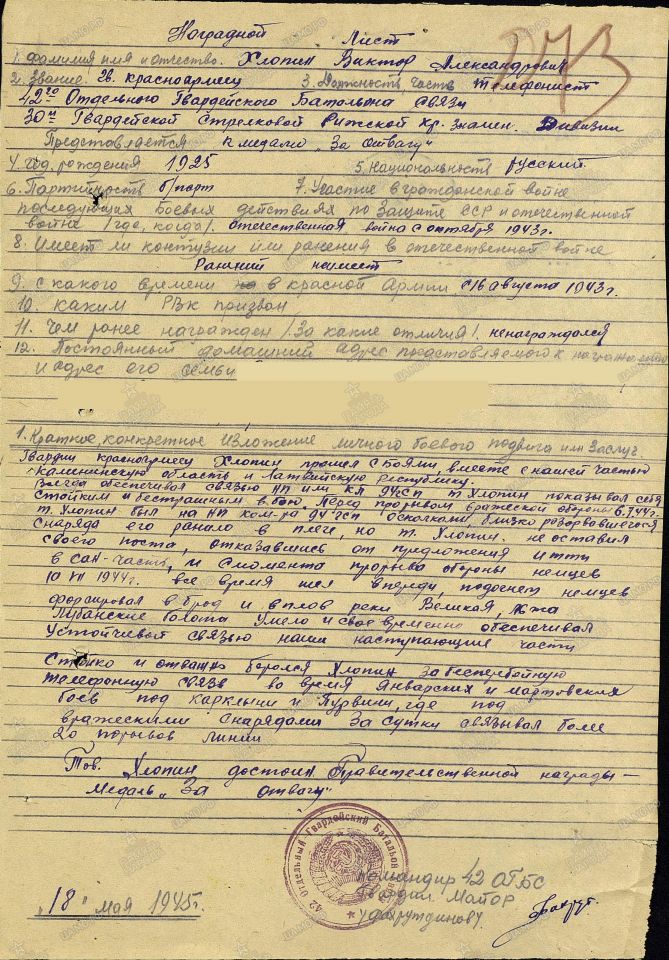 Наградной Лист
1. Фамилия имя и отчество. Хлопин Виктор Александрович
2. Звание. Гв. красноармеец 3. Должность часть телефонист
42го Отдельного Гвардейского Батальона Связи
30й Гвардейской Стрелковой Рижской Кр. Знамен. Дивизии
Представляется к медали „За отвагу"
4. год. рождения 1925 5. Национальность русский
6. Партийность б/парт 7. Участие в гражданской войне
последующих боевых действиях по защите СССР и отечественной
войне /где, когда/. отечественная война с октября 1943г.
8. Имеет ли контузии или ранения в отечественной войне
Ранений неимеет
9. с какого времени в красной Армии с 16 августа 1943г.
10. каким РВК призван
11. Чем ранее награжден /За какие отличия/. ненаграждался
12. Постоянный домашний адрес представляемого к награждению
и адрес его семьи
1. Краткое, конкретное изложение личного боевого подвига или заслуг.
Гвардии красноармеец Хлопин прошел с боями, вместе с нашей частью
Калининскую области и Латвийскую республику.
Всегда обеспечивал связью НП или КП т. Хлопин показывал себя
стойким и бесстрашным в бою. Перед прорывом вражеской обороны
т. Хлопин был на НП ком-ра осколками близко разорвавшегося
снаряда его ранило в плечо, но т. Хлопин. не оставил
своего поста, отказавшись от предложения итти
в сан-часть, и смомента прорыва обороны немцев
10 VII 1944г. все время шел впереди, подогнем немцев
форсировал в брод и вплов реки Великая, Лжа
Лубанские болота Умело и своевременно обеспечивал
Устойчевой связью наши наступающие части
Стойко и отважно боролся Хлопин забесперебойную
телефонную связь во время Январских и мартовских
боев под Карклыни и Пурвини, где под
вражескими снарядами за сутки связывал более
20 порывов линии
Тов. Хлопин достоин Правительственной награды —
Медаль „За отвагу"
42 Отдельный Гвардейский Батальон
Командир 42 ОГБС
Гвардии Майор
/Фахрутдинов/.
„18" мая 1945г.